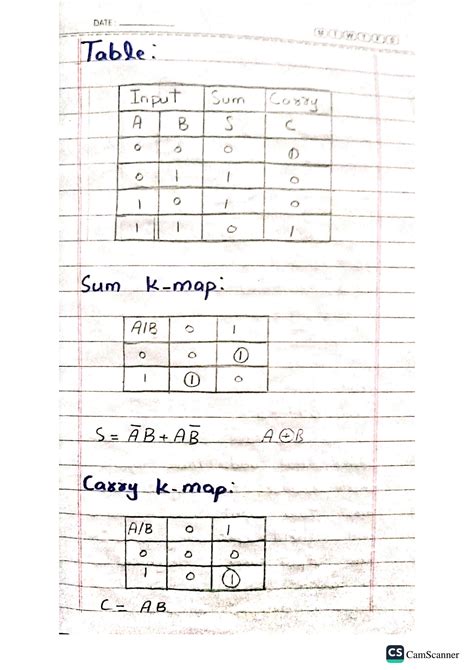 DATE:
M T W T F S S
Table:
Input Sum Carry
A B S C
0 0 0 0
0 1 1 0
1 0 1 0
1 1 0 1
Sum K-map:
A/B 0 1
0 0 1
1 1 0
S = A̅B + AB̅ A⊕B
Carry K-map:
A/B 0 1
0 0 0
1 0 1
C = AB
CS CamScanner